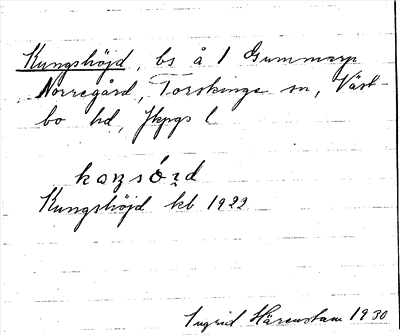 Kungshöjd, bs å 1 Gummarp
Norregård, Torskinge sn, Väst-
bo hd, Jkpgs l
Kungshöjd kb 1922
Ingrid Härenstam 1930